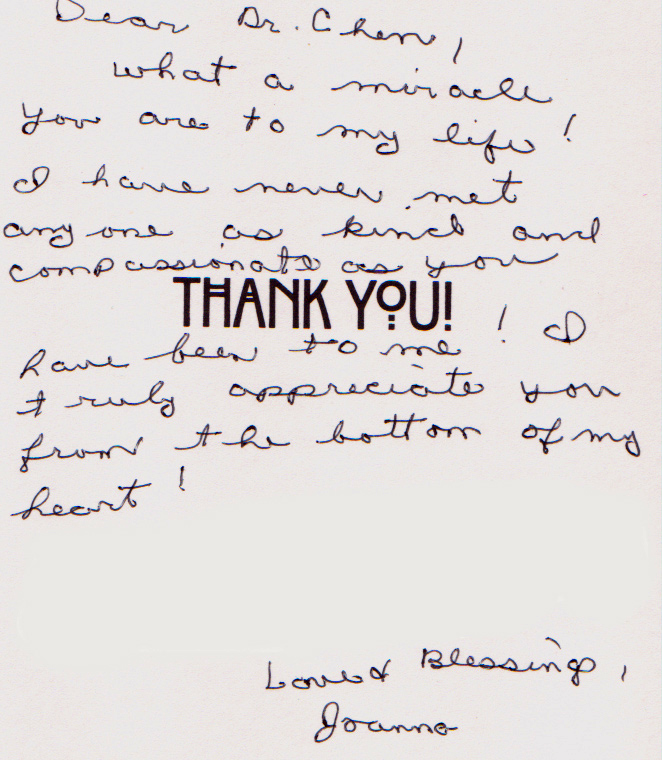 Dear Dr. Chen,
What a miracle
you are to my life!
I have never met
anyone as kind and
compassionate as you
THANK YOU!
have been to me! I
truly appreciate you
from the bottom of my
heart!
Love & Blessings,
Joanne